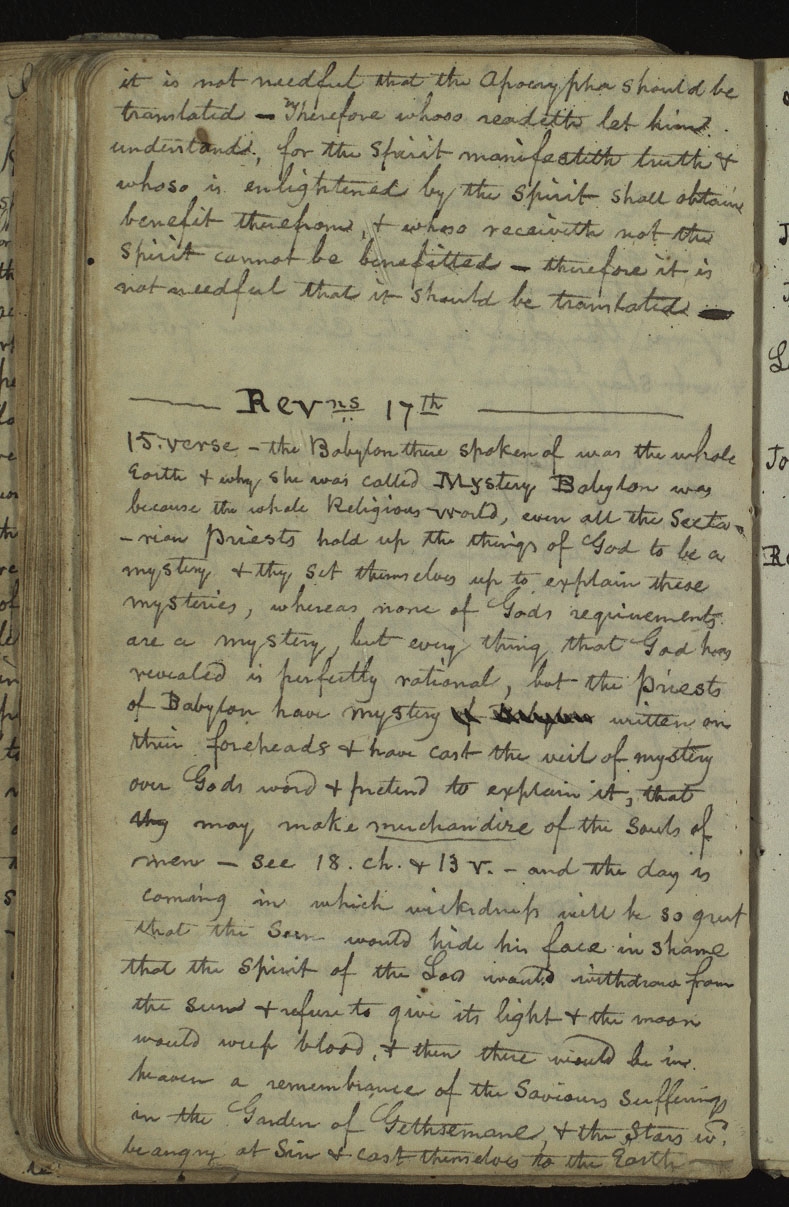 it is not needful that the Apocrypha should be
translated – Therefore whoso readeth let him
understand, for the Spirit manifesteth truth &
whoso is enlightened by the Spirit shall obtain
benefit therefrom, & whoso receiveth not the
Spirit cannot be benefitted – therefore it is
not needful that it should be translated —
Revns 17th
15. verse – the Babylon there spoken of was the whole
Earth & why she was called Mystery Babylon was
because the whole Religious world, even all the Secta-
-rian Priests hold up the things of God to be a
mystery & they set themselves up to explain these
mysteries, whereas none of Gods requirements
are a mystery, but every thing that God has
revealed is perfectly rational, but the Priests
of Babylon have mystery of Babylon written on
their foreheads & have cast the veil of mystery
over Gods word & pretend to explain it, that
they may make merchandize of the Souls of
men – see 18. ch. & 13 v. – and the day is
coming in which wickedness will be so great
that the Sun would hide his face in shame
that the Spirit of the Lord would withdraw from
the sun & refuse to give its light & the moon
would weep blood, & then there would be in
heaven a remembrance of the Saviours sufferings
in the Garden of Gethsemane, & the Stars wd.
be angry at Sin & cast themselves to the Earth